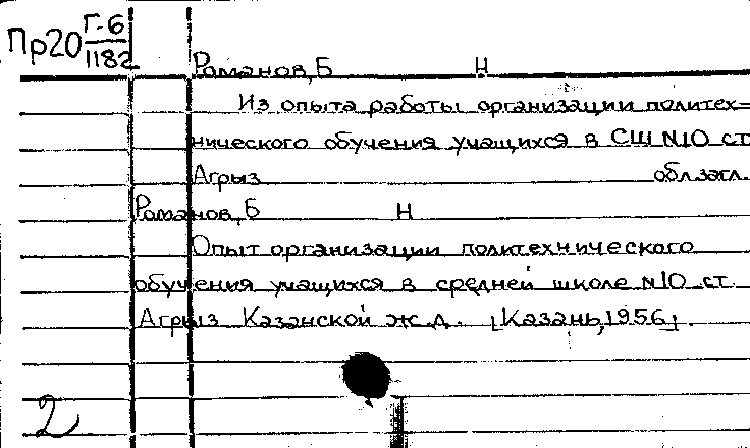 Пр20 Г-6
1182
Романов, Б Н
Из опыта работы организации политех=
нического обучения учащихся в СШ №10 ст
Агрыз обл.загл.
Романов, Б Н
Опыт организации политехнического
обучения учащихся в средней школе №10 ст.
Агрыз Казанской ж.д. [Казань, 1956].
2